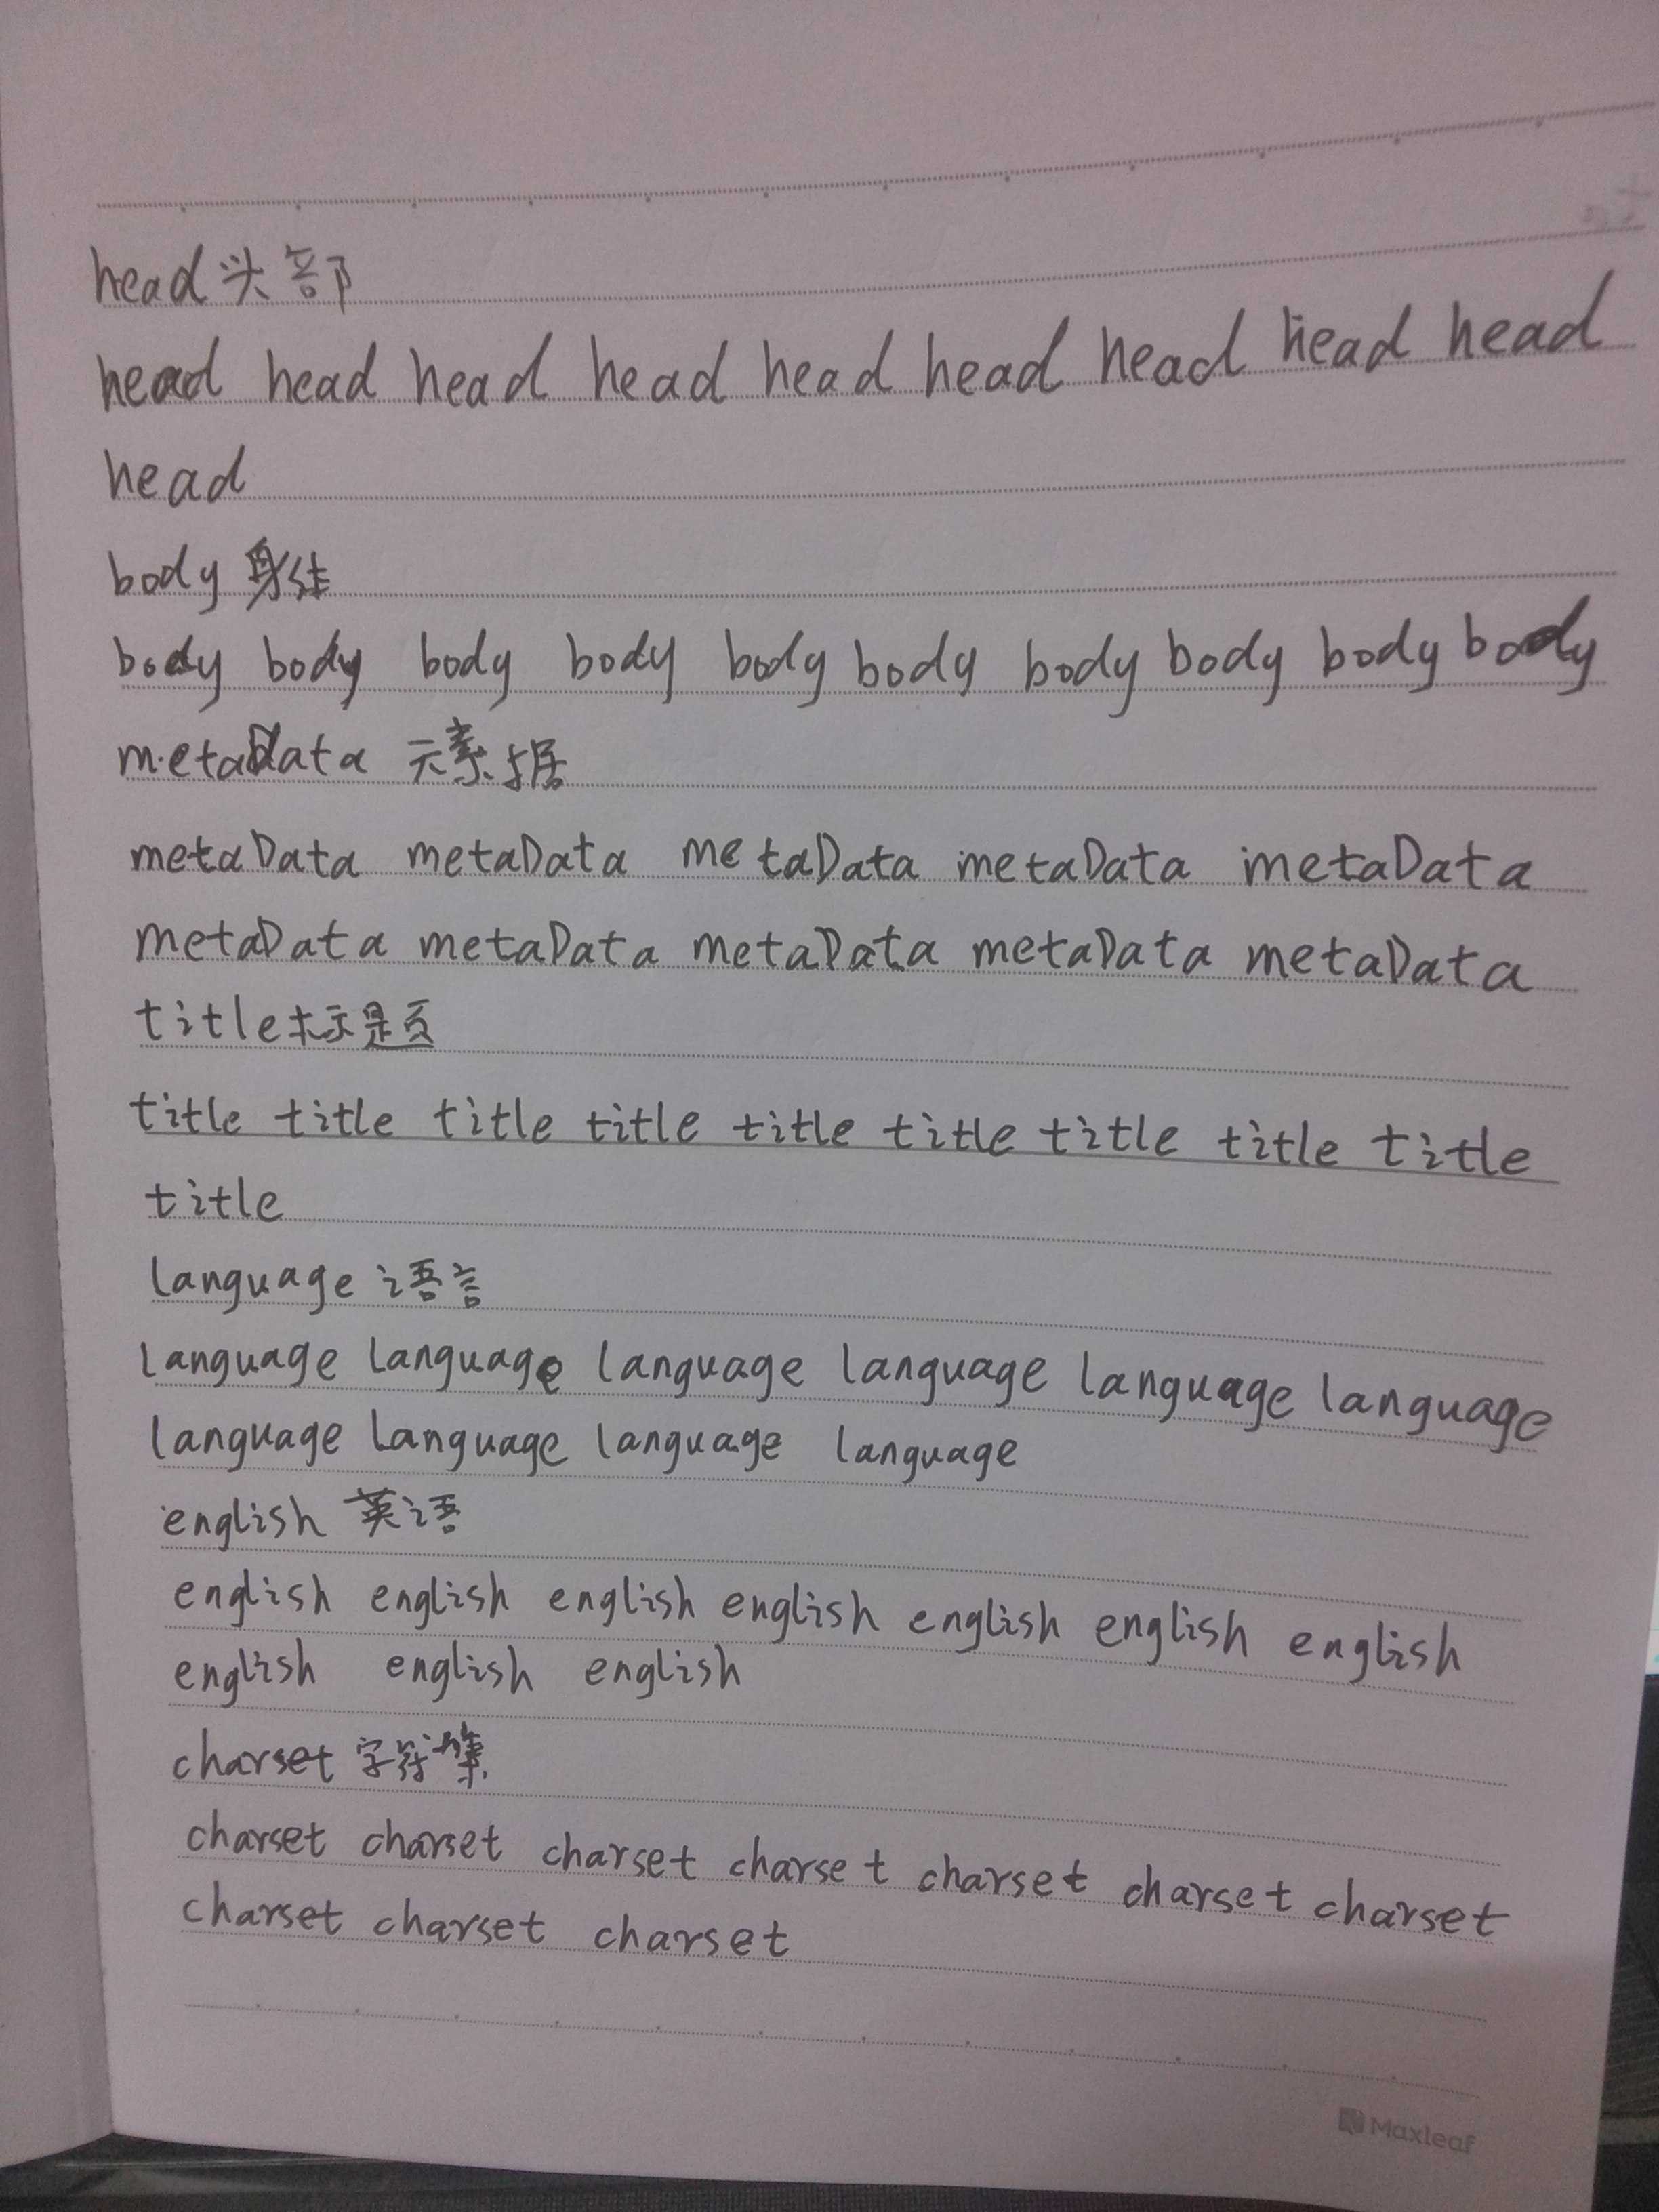 head 头部
head head head head head head head head head
head
body 身体
body body body body body body body body body body
metaData 元素据
metaData metaData metaData metaData metaData
metaData metaData metaData metaData metaData
title 标题
title title title title title title title title title
title
language 语言
language language language language language language
language language language language
english 英语
english english english english english english english
english english english
charset 字符集
charset charset charset charset charset charset charset
charset charset charset
Maxleaf